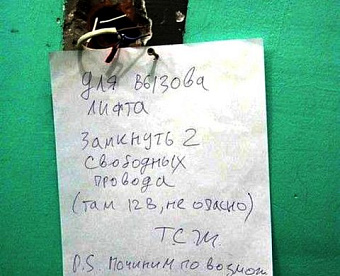 для вызова
лифта
замкнуть 2
свободных
провода
(там 12в, не опасно)
ТСЖ
P.S. починим по возмож